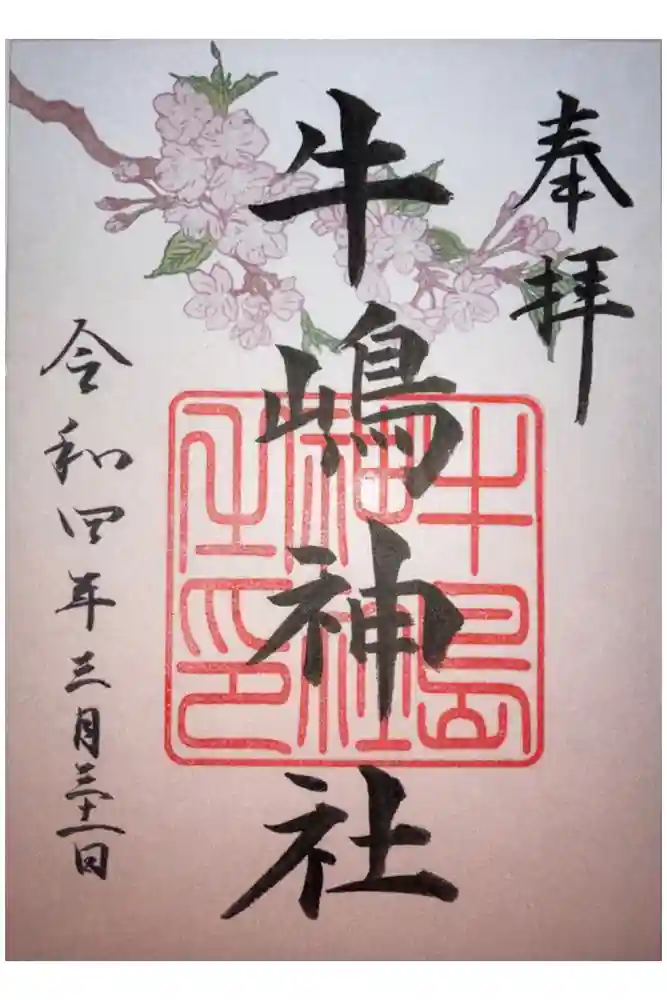 奉拝
牛嶋神社
牛島神社之印
令和四年三月三十一日